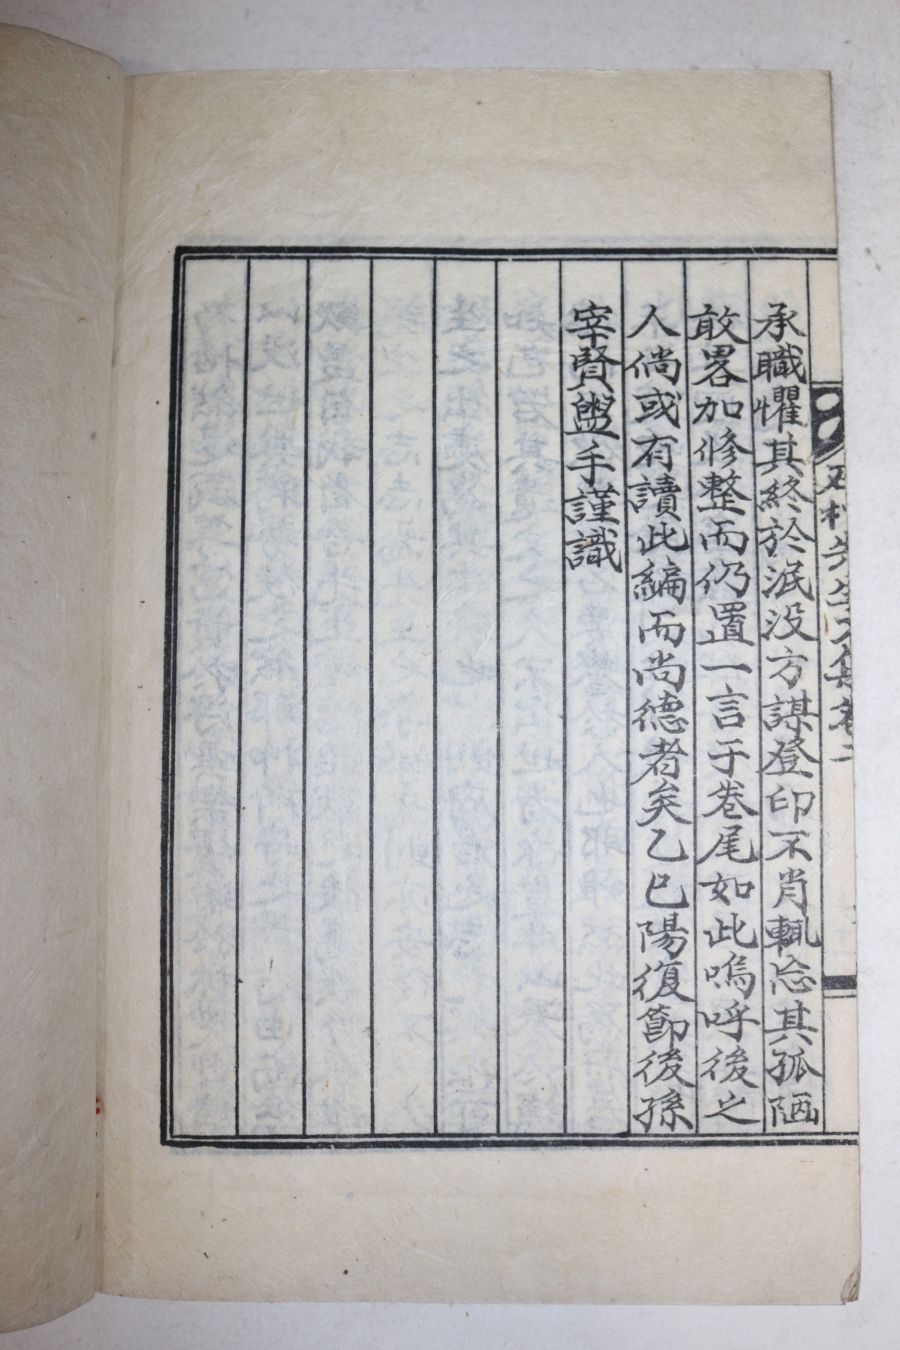 承職懼其終於泯没方謀登印不肖輒忘其孤陋
敢畧加修整而仍置一言于巻尾如此嗚呼後之
人倘或有讀此編而尚德者矣乙巳陽復節後孫
宰賢盥手謹識
先生文集卷二